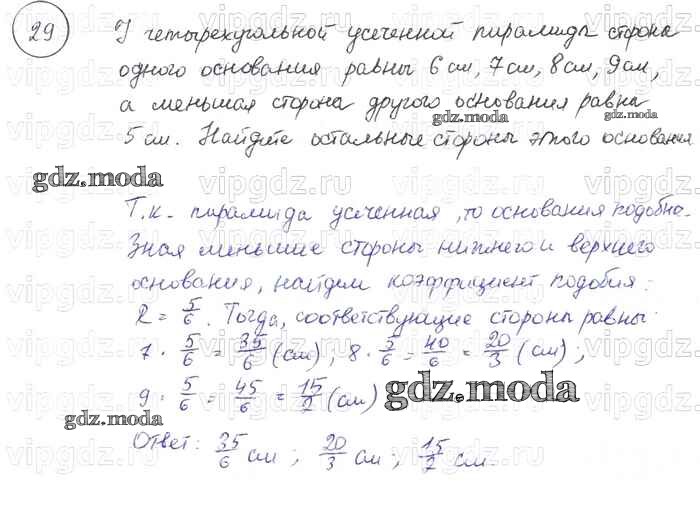 29
У четырехугольной усеченной пирамиды стороны
одного основания равны 6 см, 7 см, 8 см, 9 см,
а меньшая сторона другого основания равна
5 см. Найдите остальные стороны этого основания
Т.к. пирамида усеченная, то основания подобна.
Зная меньшие стороны нижнего и верхнего
основания, найдем коэффициент подобия:
k = 5/6. Тогда, соответствующие стороны равны:
7 · 5/6 = 35/6 (см); 8 · 5/6 = 40/6 = 20/3 (см);
9 · 5/6 = 45/6 = 15/2 (см)
Ответ: 35/6 см; 20/3 см; 15/2 см.
gdz.moda
gdz.moda
gdz.moda
gdz.moda
gdz.moda
vipgdz.ru